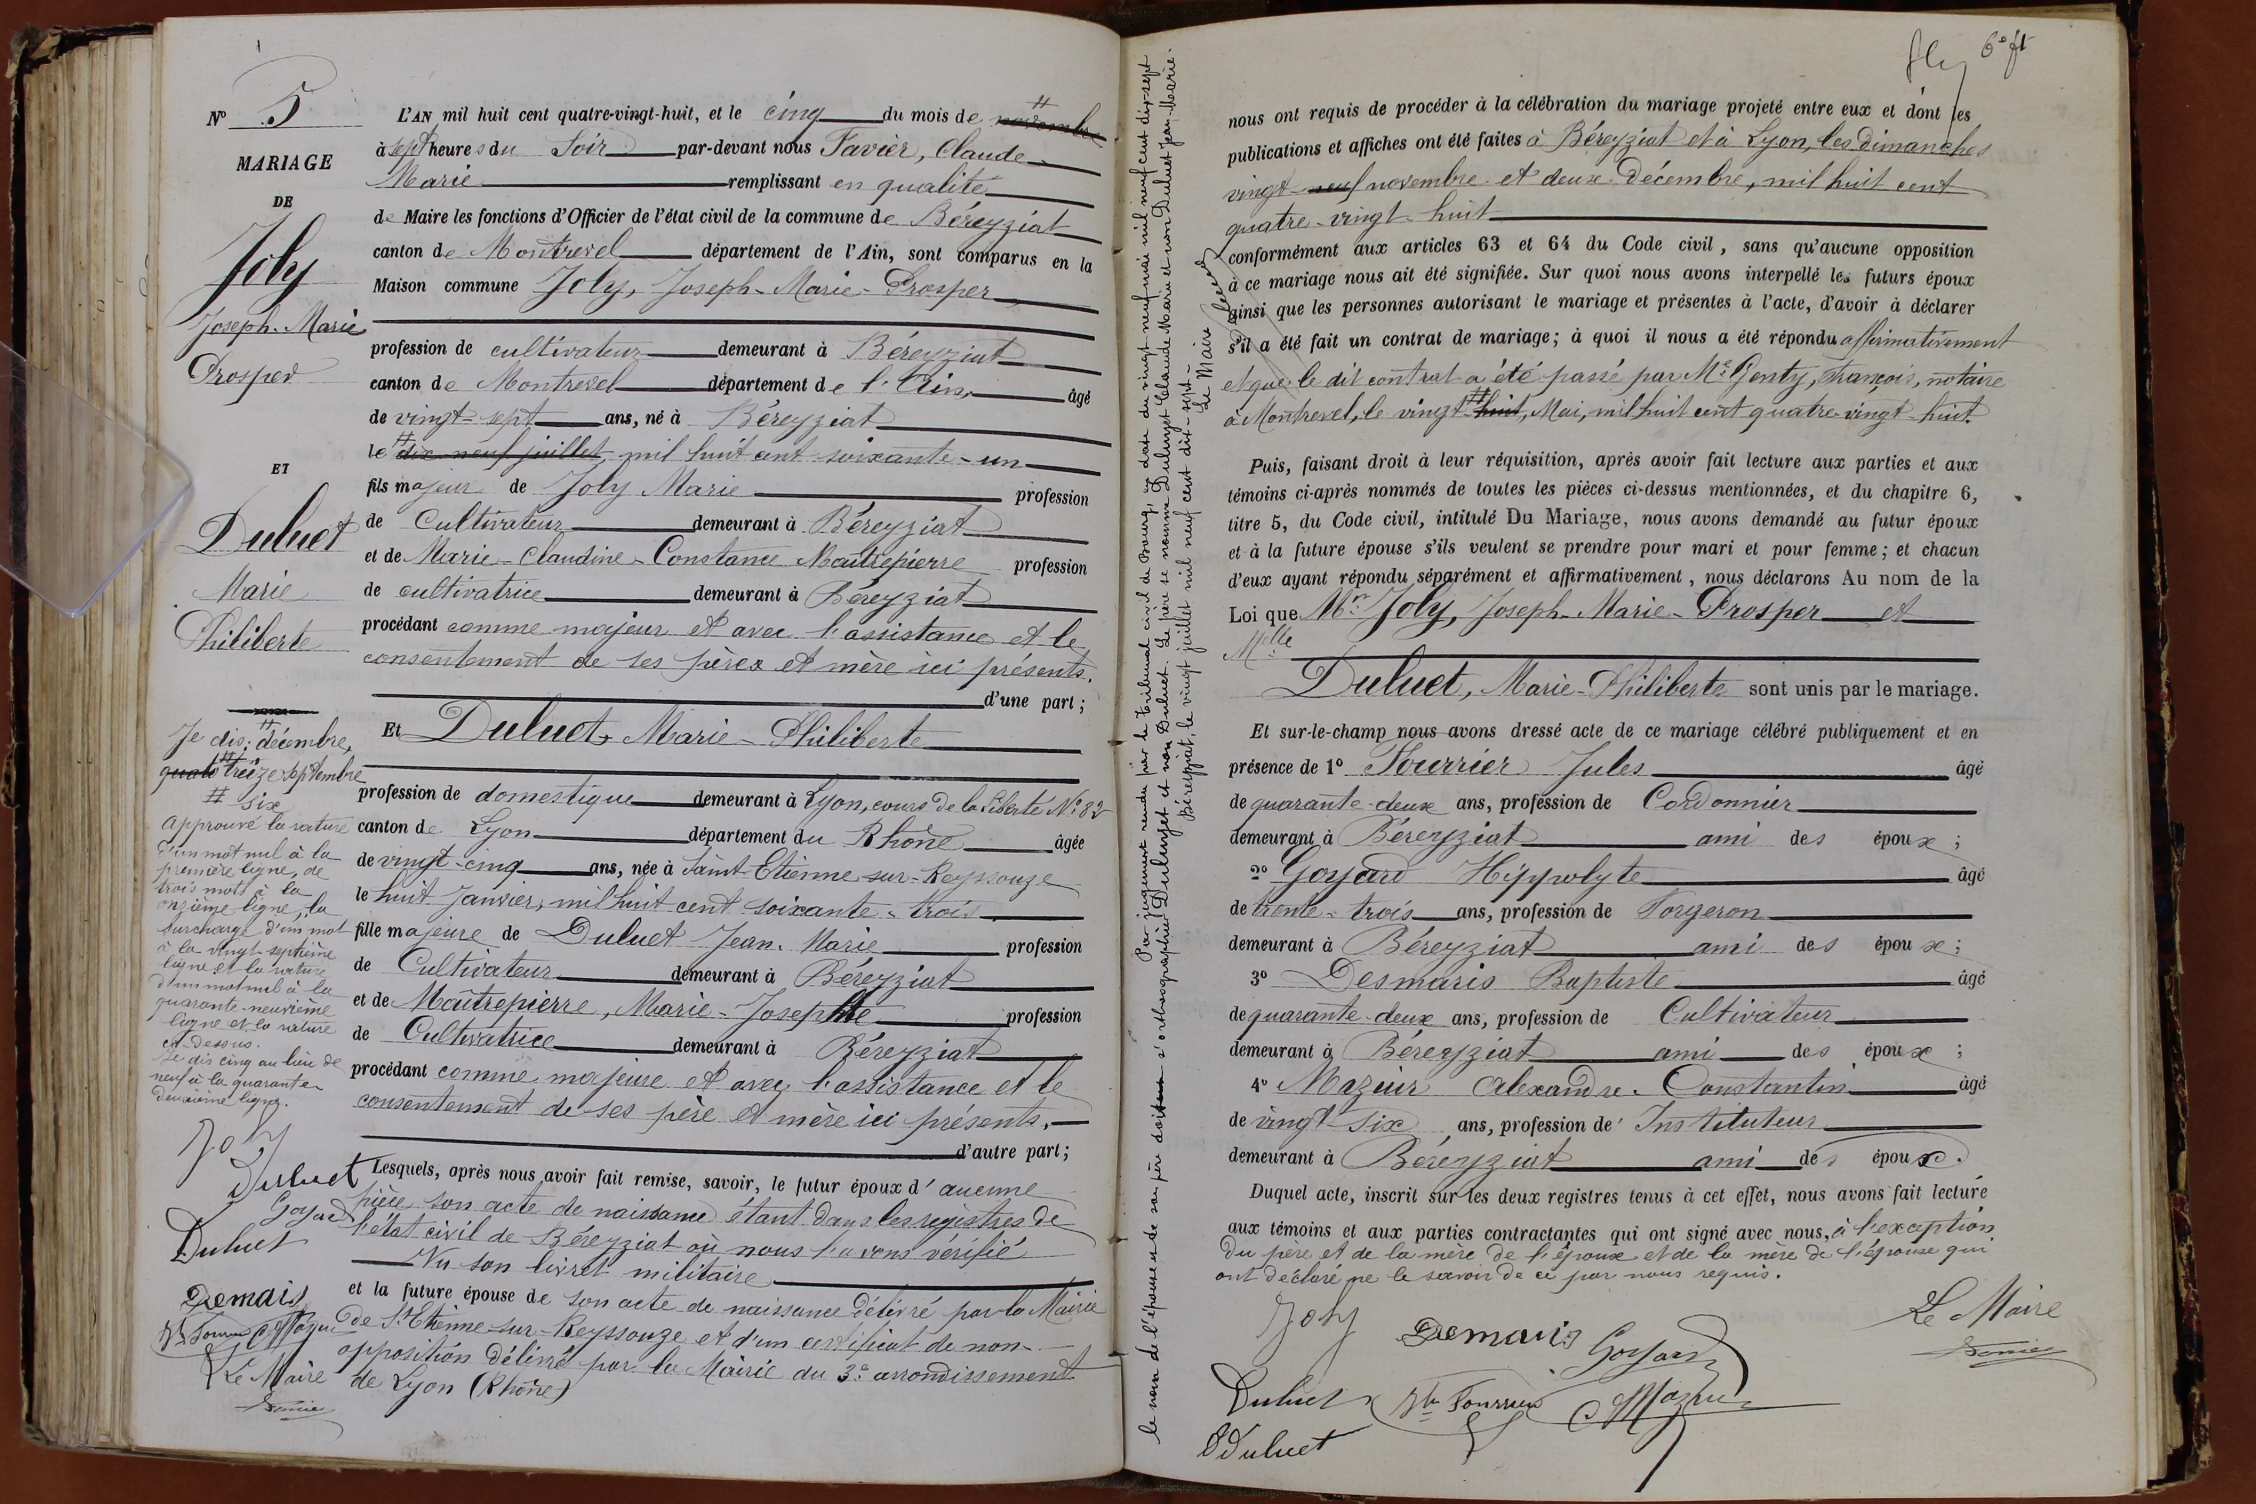 N° 5
MARIAGE
DE
Joly
Joseph-Marie
Prosper
ET
Duluet
Marie
Philiberte
Je dis: # décembre,
quato # treize septembre
# six
Approuvé la rature
d'un mot nul à la
première ligne, de
trois mots à la
onzième ligne, la
surcharge d'un mot
à la vingt-septième
ligne et la rature
d'un mot nul à la
quarante-neuvième
ligne et la rature
ci-dessus.
Je dis cinq au lieu de
neuf à la quarante-
deuxième ligne.
Joly
Duluet
Goyard
Duluet
Demais
Le Maire
L'AN mil huit cent quatre-vingt-huit, et le cinq du mois de # novembre
à sept heures du soir par-devant nous Favier, Claude-
Marie remplissant en qualité
de Maire les fonctions d'Officier de l'état civil de la commune de Béreyziat
canton de Montrevel département de l'Ain, sont comparus en la
Maison commune Joly, Joseph-Marie-Prosper
profession de cultivateur demeurant à Béreyziat
canton de Montrevel département de l'Ain, âgé
de vingt-sept ans, né à Béreyziat
le # dix-neuf juillet mil huit cent soixante-un
fils majeur de Joly Marie profession
de Cultivateur demeurant à Béreyziat
et de Marie-Claudine-Constance Maitrepierre profession
de cultivatrice demeurant à Béreyziat
procédant comme majeur et avec l'assistance et le
consentement de ses père et mère ici présents.
d'une part ;
Et Duluet, Marie-Philiberte
profession de domestique demeurant à Lyon, cours de la Liberté N° 82
canton de Lyon département du Rhône âgée
de vingt-cinq ans, née à Saint-Etienne-sur-Reyssouze
le huit Janvier, mil huit cent soixante-trois
fille majeure de Duluet Jean-Marie profession
de Cultivateur demeurant à Béreyziat
et de Maîtrepierre, Marie-Josephte profession
de Cultivatrice demeurant à Béreyziat
procédant comme majeure et avec l'assistance et le
consentement de ses père et mère ici présents.
d'autre part ;
Lesquels, après nous avoir fait remise, savoir, le futur époux d'aucune
pièce son acte de naissance étant dans les registres de
l'état civil de Béreyziat où nous l'avons vérifié
Vu son livret militaire
et la future épouse de son acte de naissance délivré par la Mairie
de St Etienne-sur-Reyssouze et d'un certificat de non-
opposition délivré par la Mairie du 3e arrondissement
de Lyon (Rhône)
Par jugement rendu par le tribunal civil de Bourg, en date du vingt neuf mai mil neuf cent dix-sept
le nom de l'épouse et de son père doit s'orthographier Duluzet et non Duluet. Le père se nomme Duluzet Claude Marie et non Duluet Jean-Marie.
Béreyziat, le vingt juillet mil neuf cent dix-sept-
Le Maire
6e ft
nous ont requis de procéder à la célébration du mariage projeté entre eux et dont les
publications et affiches ont été faites à Béreyziat et à Lyon, les dimanches
vingt-neuf novembre et deux Décembre, mil huit cent
quatre-vingt-huit
conformément aux articles 63 et 64 du Code civil, sans qu'aucune opposition
à ce mariage nous ait été signifiée. Sur quoi nous avons interpellé les futurs époux
ainsi que les personnes autorisant le mariage et présentes à l'acte, d'avoir à déclarer
s'il a été fait un contrat de mariage; à quoi il nous a été répondu affirmativement
et que le dit contrat a été passé par Me Genty, François, notaire
à Montrevel, le vingt-# huit, Mai, mil huit cent quatre-vingt-huit.
Puis, faisant droit à leur réquisition, après avoir fait lecture aux parties et aux
témoins ci-après nommés de toutes les pièces ci-dessus mentionnées, et du chapitre 6,
titre 5, du Code civil, intitulé Du Mariage, nous avons demandé au futur époux
et à la future épouse s'ils veulent se prendre pour mari et pour femme; et chacun
d'eux ayant répondu séparément et affirmativement, nous déclarons Au nom de la
Loi que Mr. Joly, Joseph-Marie-Prosper et
Melle
Duluet, Marie-Philiberte sont unis par le mariage.
Et sur-le-champ nous avons dressé acte de ce mariage célébré publiquement et en
présence de 1° Fourrier Jules âgé
de quarante-deux ans, profession de Cordonnier
demeurant à Béreyziat ami des époux ;
2° Goyard Hyppolyte âgé
de trente-trois ans, profession de Forgeron
demeurant à Béreyziat ami des époux ;
3° Desmaris Baptiste âgé
de quarante-deux ans, profession de Cultivateur
demeurant à Béreyziat ami des époux ;
4° Mazuir Alexandre-Constantin âgé
de vingt-six ans, profession de Instituteur
demeurant à Béreyziat ami des époux.
Duquel acte, inscrit sur les deux registres tenus à cet effet, nous avons fait lecture
aux témoins et aux parties contractantes qui ont signé avec nous, à l'exception
du père et de la mère de l'époux et de la mère de l'épouse qui
ont déclaré ne le savoir de ce par nous requis.
Joly
Demais
Goyard
Le Maire
Duluet
Fourrier
Mazuir
Duluet